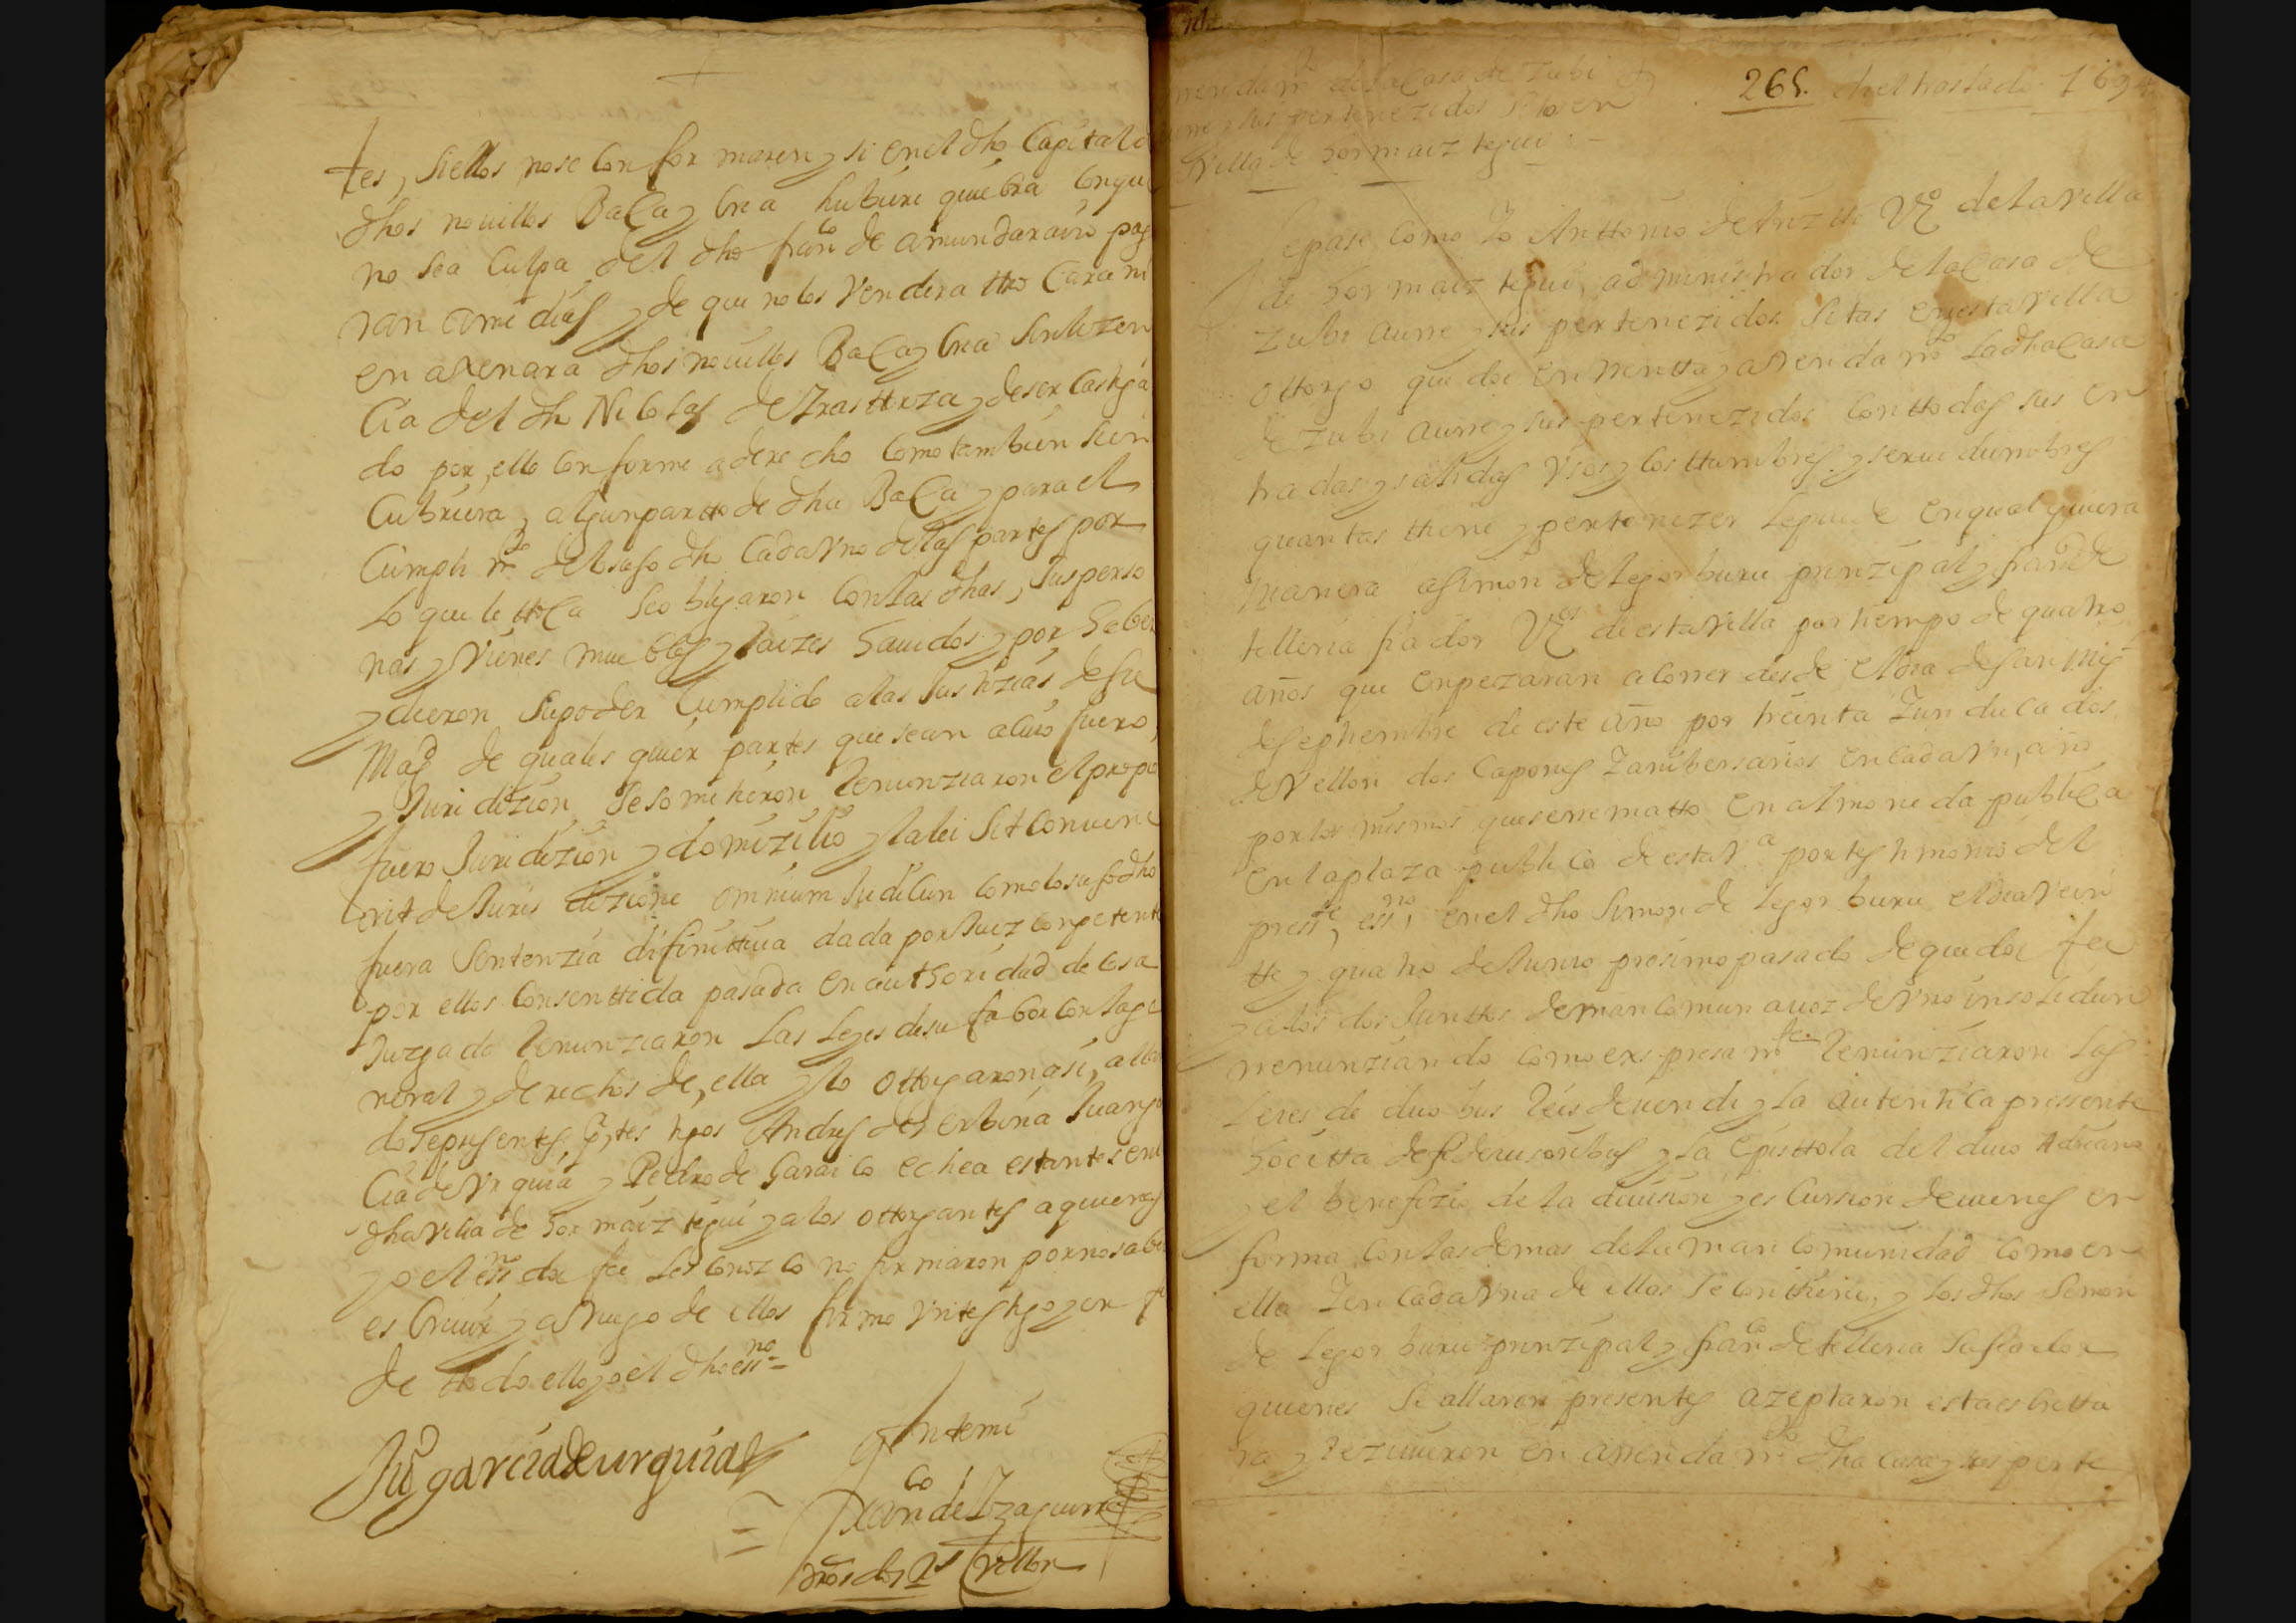 tes, si ellos no se conformaren y si en el dho Capital o
dhos nouillos Baca y bria hubiere quiebra en que
no sea Culpa del dho franco de amundarain pag
ran a medias y de que no los Vendera tro cara ni
en axenara dhos nouillos Baca y bria sin lizen
cia del dho Nicolas de Yrastorza y de ser Castiga
do por ello conforme a derecho como tambien si en
Cubriera algun partto de dha Baca y para el
Cumplimto del suso dho Cada vno de las partes por
lo que le tca se obligaron con las dhas, sus perso
nas y vienes muebles y Raizes hauidos y por haber
y dieron su poder Cumplido a las Justizias de su
Magd de quales quier partes que sean a cuio fuero,
y Juridizion se sometieron Renunziaron el propio
fuero Juridizion y domizilio y la lei sit Convene
rit de Juris dizione omnium Judicun como lo suso dho
fuera sentenzia difinittiua dada por Juez conpetente
por ellos Consenttida pasada en authoridad de cosa
Juzgada Renunziaron las leyes de su fabor con la ge
neral y derechos de, ella y lo ottorgaron asi, a lla
do se presentes, por tes tigos Andres de erbina Juan gar
Cia de Vrquia y Pedro de Garai co echea estantes en l
dha villa de hormaiz tegui y a los ottorgantes a quienes
yo el essno doi fee les conozco no firmaron por no saber
es Criuir y a Ruego de ellos firmo vn testigo y en fe
de ttodo ello yo el dho essno =
Juo garcia de urquia
Ante mi
Franco de Yzaguirre
dros dos Rs Vellon
265. del traslado 1694
arrendamto de la Casa de Zubi
aurre y sus pertenezidos sitos en
Villa de hormaiz tegui =
Sepase como Yo Anttonio de Anzu Vzo de la villa
de hormaiz tegui, administrador de la Casa de
Zubi aurre y sus pertenezidos sitas en esta villa
ottorgo que doi en Rentta y arrendamto la dha Casa
de Zubi aurre y sus pertenezidos con ttodas sus en
tradas y salidas vsos y costtumbres y seruidumbres
quantas thiene y pertenezer le puede en qual quiera
manera a simon de legorburu prinzipal y franco de
telleria fiador Vzos de esta villa por tiempo de quatro
años que enpezaran a correr desde el dia de san Migl
de septiembre de este año por treinta Y un ducados
de vellon dos Capones Y aniversarios en cada vn, año
por los mismos que se rrematto en almoneda publica
en la plaza publica de esta Va por testimonio del
preste, essno, en el dho simon de legorburu el dia vein
tte y quatro de Junio prosimo pasado de que doi fee
y a los dos Junttos de mancomun a voz de vno insolidun
rrenunziando como expresamte Renunziaron las
leies de duobus Reis deuendi y la autentica pressente
hocitta de fideiussoribus y la Epistola del diuo Adriano
y el benefizio de la diuision y es Cursion de vienes en
forma con las demas de la man comunidad como en
ella Y en Cada vna de ellas se conthiene, y los dhos simon
de legorburu prinzipal y franco de telleria su fiador
quienes se allaron presentes azeptaron esta escrittu
ra y Rezivieron en arrendamto dha casa y sus perte